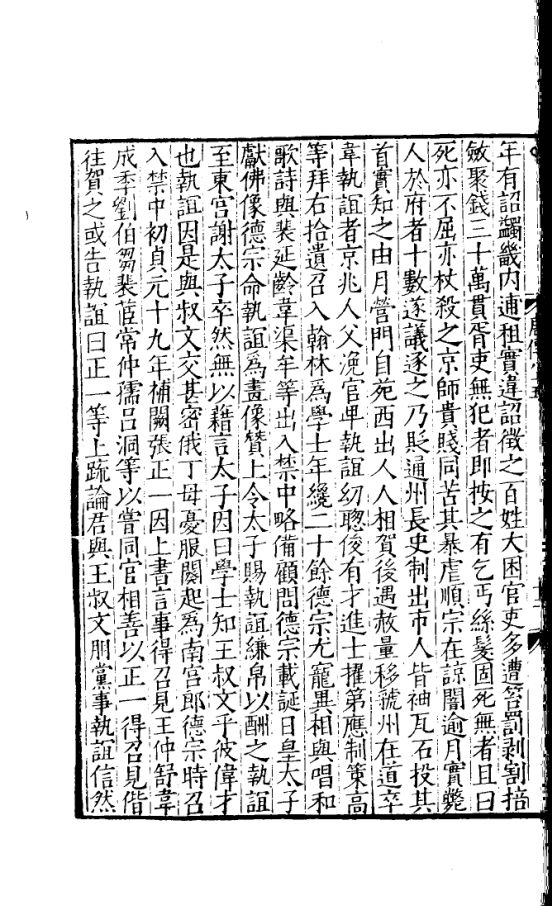 年有詔蠲畿内逋租實違詔徵之百姓大困官吏多遭笞罰剥割掊
斂聚錢三十萬貫胥吏無犯者即按之有乞丐絲髮固死無者且曰
死亦不屈亦杖殺之京師貴賤同苦其暴虐順宗在諒闇逾月實斃
人於府者十數遂議逐之乃貶通州長史制出市人皆袖瓦石投其
首實知之由月營門自苑西出人人相賀後遇赦量移虢州在道卒
韋執誼者京兆人父浼官卑執誼幼聰俊有才進士擢第應制策高
等拜右拾遺召入翰林爲學士年纔二十餘德宗尤寵異相與唱和
歌詩與裴延齡韋渠牟等出入禁中略備顧問德宗載誕日皇太子
獻佛像德宗命執誼爲畫像贊上令太子賜執誼縑帛以酬之執誼
至東宫謝太子卒然無以藉言太子因曰學士知王叔文乎彼偉才
也執誼因是與叔文交甚密俄丁母憂服闋起爲南宫郎德宗時召
入禁中初貞元十九年補闕張正一因上書言事得召見王仲舒韋
成季劉伯芻裴茝常仲孺呂洞等以嘗同官相善以正一得召見偕
往賀之或告執誼曰正一等上疏論君與王叔文朋黨事執誼信然